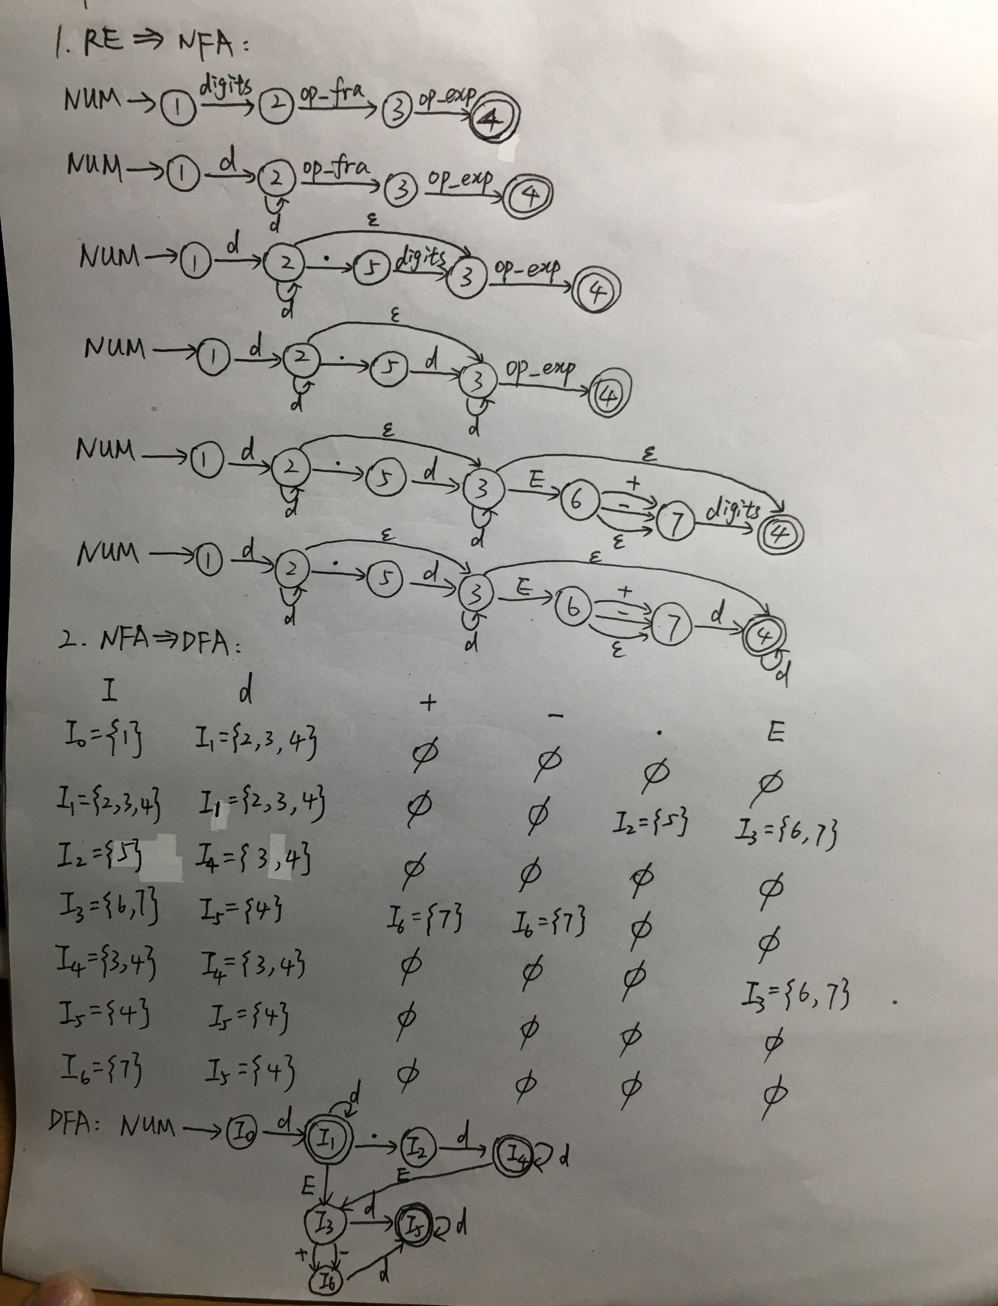 1. RE ⇒ NFA:
NUM → 1 digits 2 op_fra 3 op_exp 4
NUM → 1 d 2 d op_fra 3 op_exp 4
NUM → 1 d 2 d ε . 5 digits 3 op_exp 4
NUM → 1 d 2 d ε . 5 d 3 d op_exp 4
NUM → 1 d 2 d ε . 5 d 3 d ε E 6 + - ε 7 digits 4
NUM → 1 d 2 d ε . 5 d 3 d ε E 6 + - ε 7 d 4 d
2. NFA ⇒ DFA:
I d + - . E
I₀={1} I₁={2,3,4} ∅ ∅ ∅ ∅
I₁={2,3,4} I₁={2,3,4} ∅ ∅ I₂={5} I₃={6,7}
I₂={5} I₄={3,4} ∅ ∅ ∅ ∅
I₃={6,7} I₅={4} I₆={7} I₆={7} ∅ ∅
I₄={3,4} I₄={3,4} ∅ ∅ ∅ I₃={6,7}
I₅={4} I₅={4} ∅ ∅ ∅ ∅
I₆={7} I₅={4} ∅ ∅ ∅ ∅
DFA: NUM → I₀ d I₁ d . I₂ d I₄ d
E E
I₃ d I₅ d
+ - d
I₆